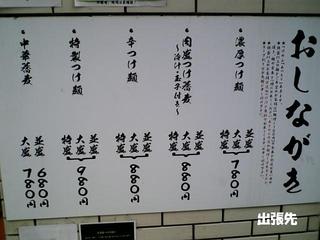 おしながき
・濃厚つけ麺
並盛
大盛
特盛
780円
・肉盛つけ蕎麦
〜冷汁・玉子付き〜
並盛
大盛
特盛
880円
・辛つけ麺
並盛
大盛
特盛
880円
・特製つけ麺
並盛
大盛
特盛
980円
・中華蕎麦
並盛 680円
大盛 780円
出張先